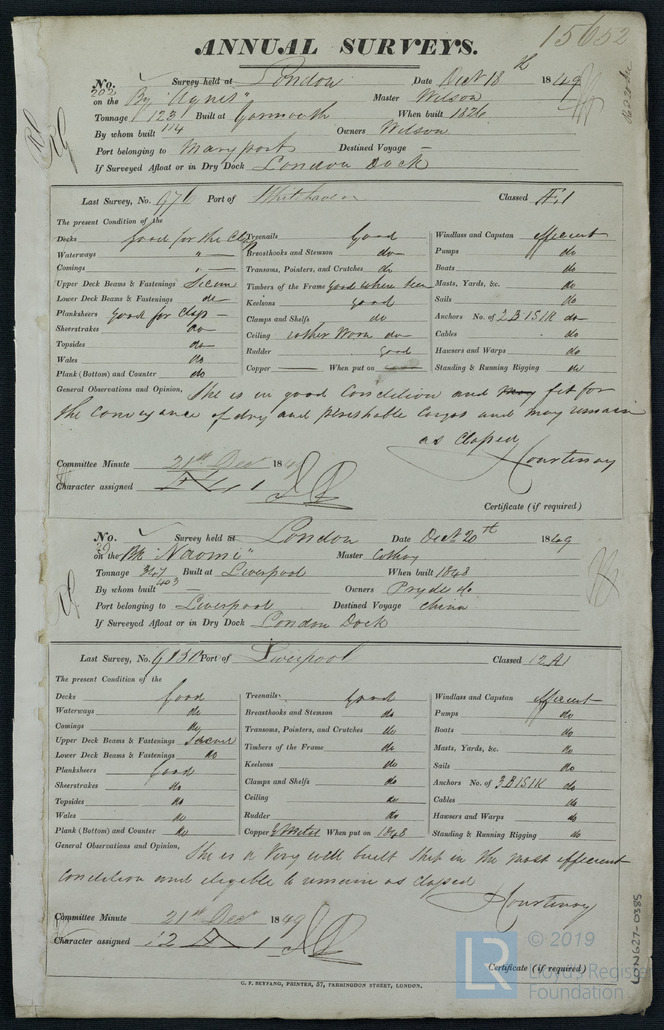 15652
ANNUAL SURVEYS.
No. 202 Survey held at London Date Decr 18th 1849
on the Bg "Agnes" Master Wilson
Tonnage 123 114 Built at Yarmouth When built 1826
By whom built Owners Wilson
Port belonging to Maryport Destined Voyage —
If Surveyed Afloat or in Dry Dock London Dock
Last Survey, No. 976 Port of Whitehaven Classed Æ1
The present Condition of the
Decks good for the Class Treenails Good Windlass and Capstan efficient
Waterways " — Breasthooks and Stemson do Pumps do
Comings " — Transoms, Pointers, and Crutches do Boats do
Upper Deck Beams & Fastenings Secure Timbers of the Frame good where seen Masts, Yards, &c. do
Lower Deck Beams & Fastenings do Keelsons good Sails do
Planksheers good for Class — Clamps and Shelfs do Anchors No. of 2B 1S 1K do
Sheerstrakes do Ceiling rather Worn do Cables do
Topsides do Rudder good Hawsers and Warps do
Wales do Copper — When put on — Standing & Running Rigging do
Plank (Bottom) and Counter do
General Observations and Opinion, She is in good Condition and may fit for
the conveyance of dry and perishable Cargos and may remain
as Classed
Courtenay
Committee Minute 21st Decr 1849
Character assigned Æ 1
Certificate (if required)
No. Survey held at London Date Decr 20th 1849
on the Bk "Naomi" Master
Tonnage 347 403 Built at Liverpool When built 1848
By whom built — Owners Pryde &c
Port belonging to Liverpool Destined Voyage China
If Surveyed Afloat or in Dry Dock London Dock
Last Survey, No. Port of Liverpool Classed 12A1
The present Condition of the
Decks Good Treenails Good Windlass and Capstan efficient
Waterways do Breasthooks and Stemson do Pumps do
Comings do Transoms, Pointers, and Crutches do Boats do
Upper Deck Beams & Fastenings Secure Timbers of the Frame do Masts, Yards, &c. do
Lower Deck Beams & Fastenings do Keelsons do Sails do
Planksheers good Clamps and Shelfs do Anchors No. of 3B 1S 1K do
Sheerstrakes do Ceiling do Cables do
Topsides do Rudder do Hawsers and Warps do
Wales do Copper Y Metal When put on 1848 Standing & Running Rigging do
Plank (Bottom) and Counter do
General Observations and Opinion, She is a Very well built Ship in the most efficient
Condition and eligible to remain as Classed
Courtenay
Committee Minute 21st Decr 1849
Character assigned 12 A 1
Certificate (if required)
G. F. SEYFANG, PRINTER, 57, FARRINGDON STREET, LONDON.
LR © 2019
Lloyd's Register
Foundation